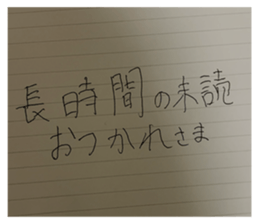 長時間の未読
おつかれさま